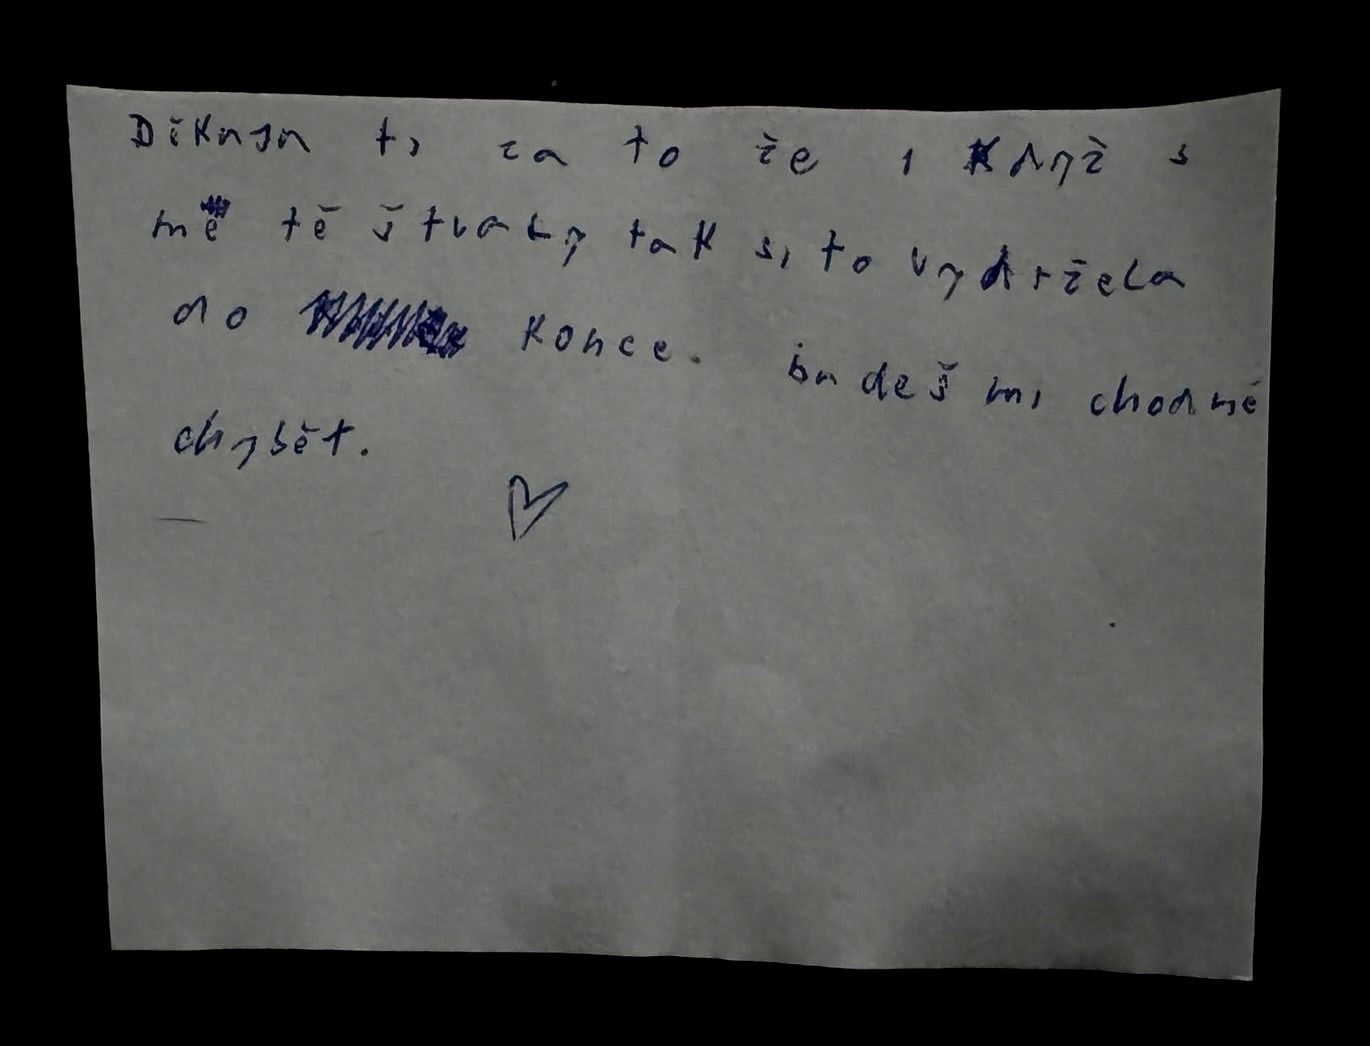 Děkuju ti za to že i když s
mě tě štvaly tak si to vydržela
do konce. budeš mi hodně
chybět.